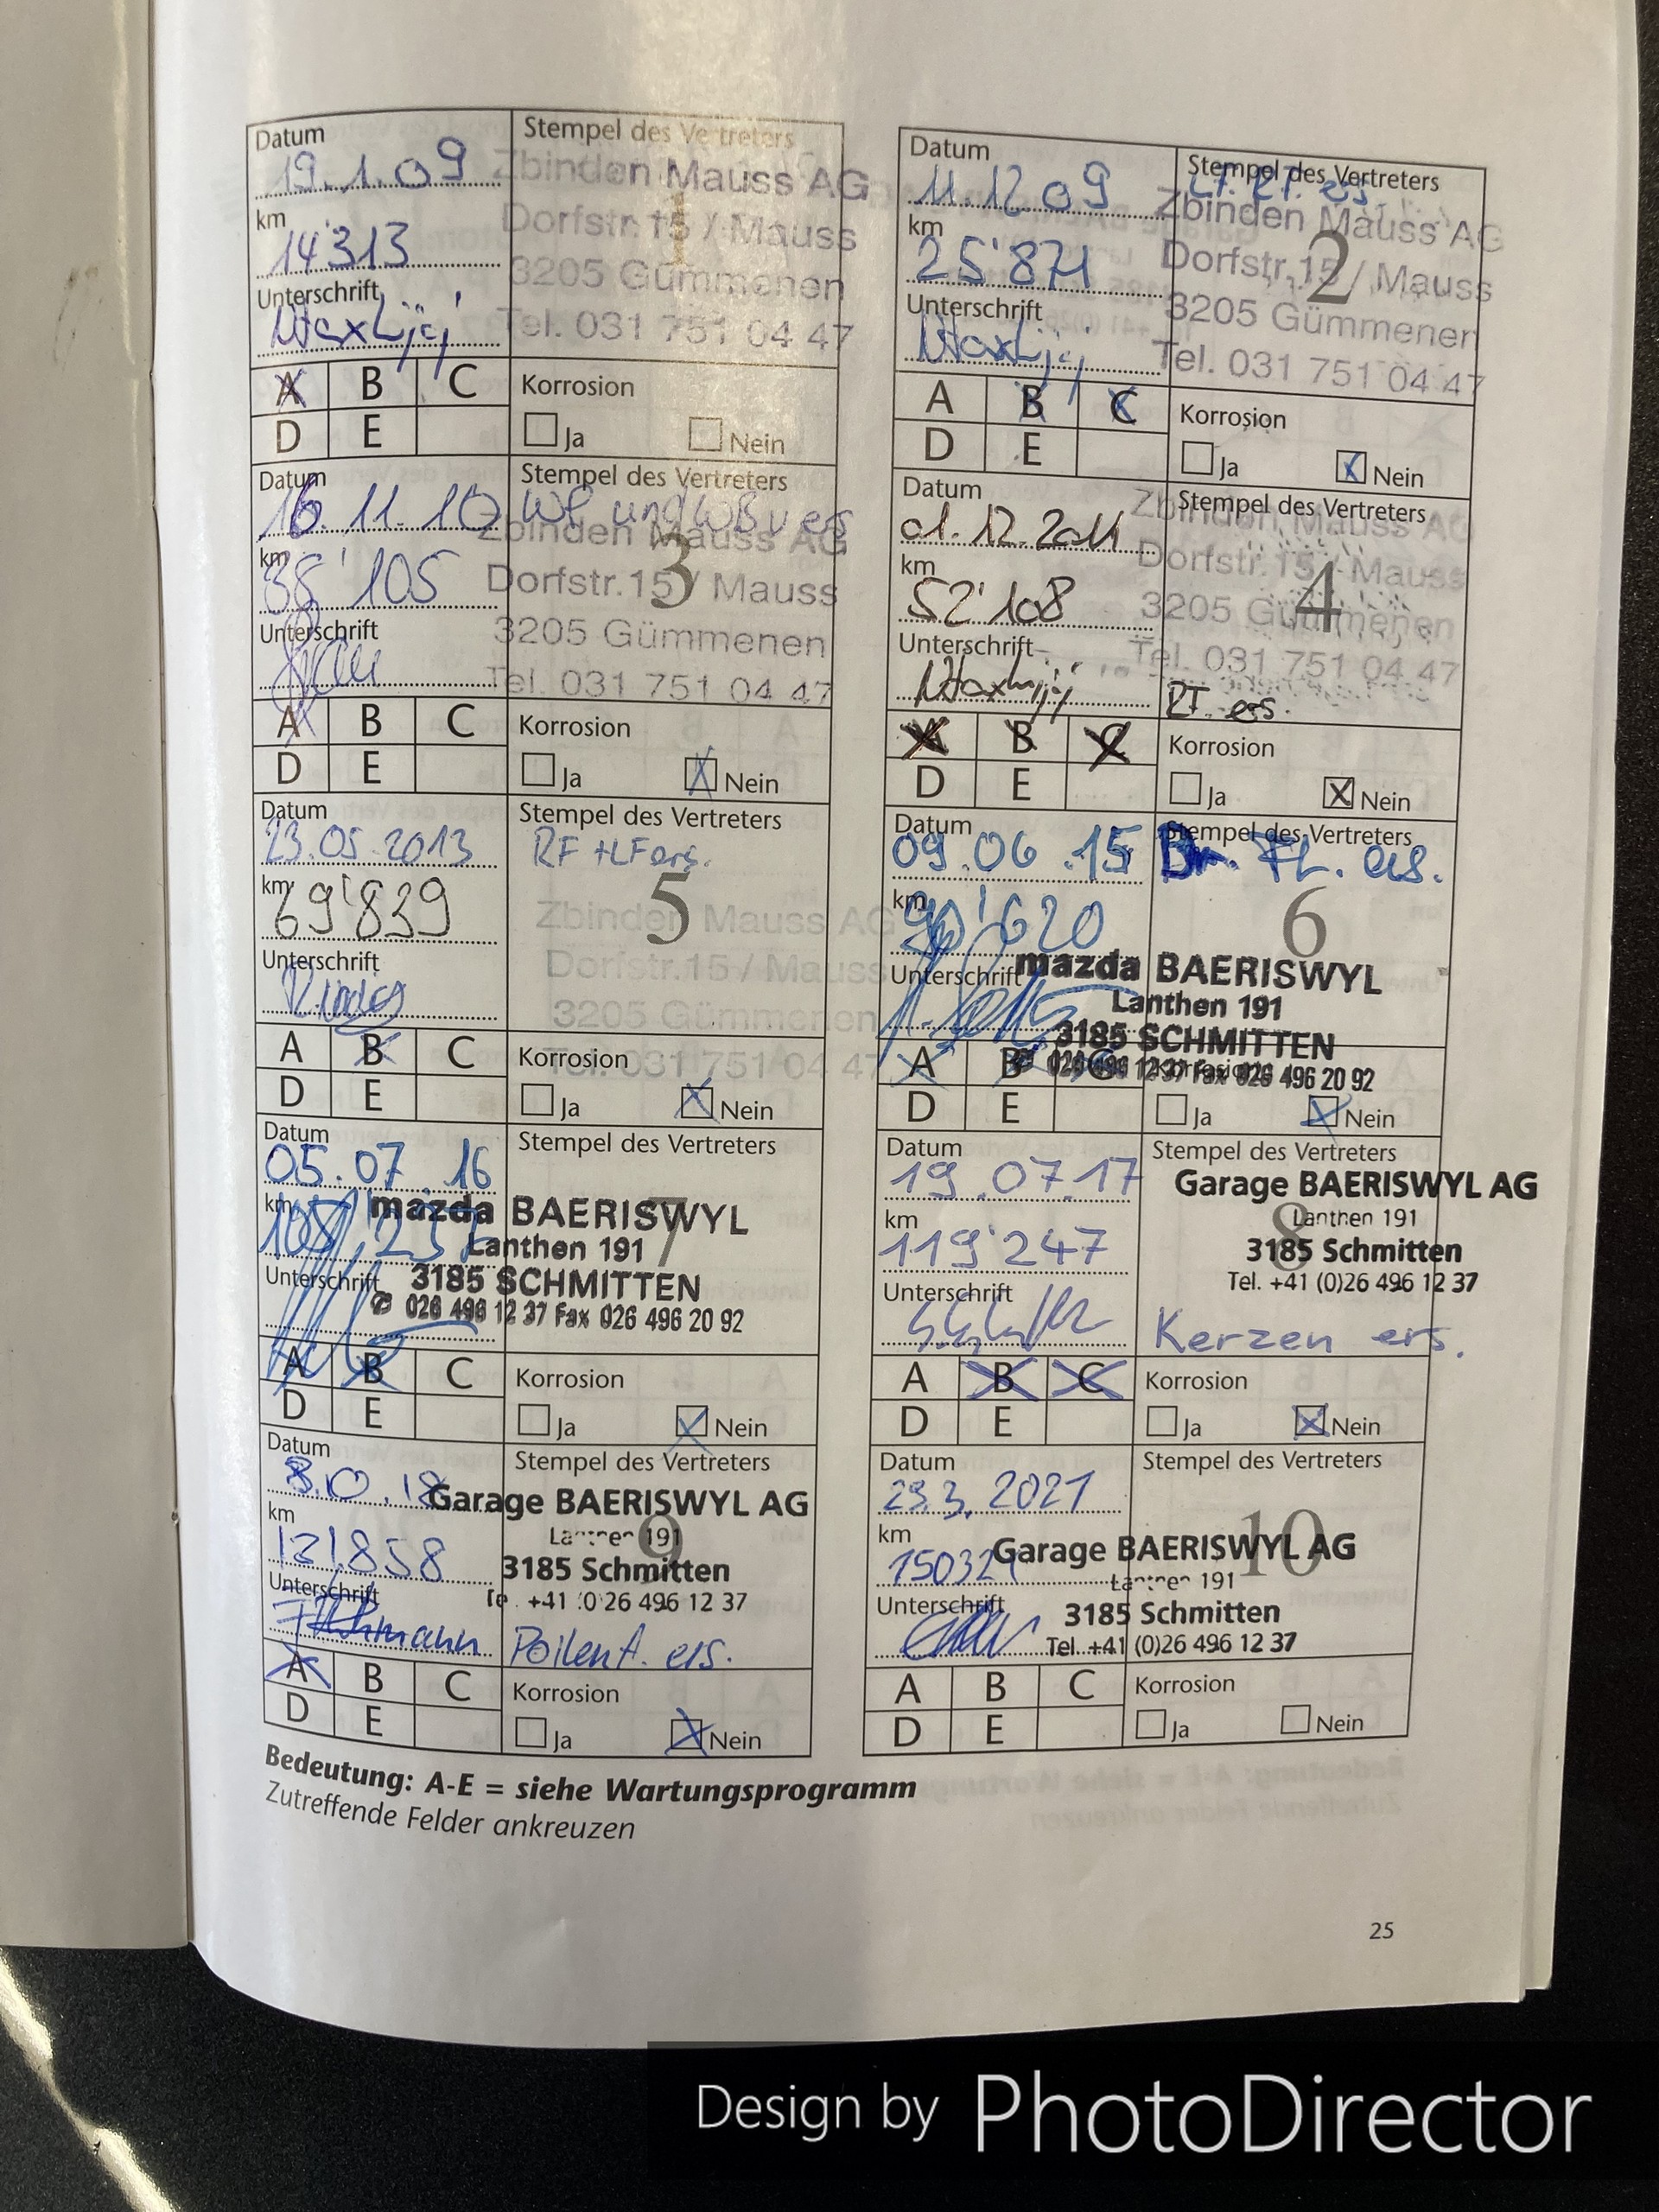 Datum
19.1.09
km
14'313
Unterschrift
Stempel des Vertreters
Zbinden Mauss AG
Dorfstr. 15 / Mauss
3205 Gümmenen
Tel. 031 751 04 47
A B C
D E
Korrosion
Ja Nein
Datum
11.12.09
km
25'871
Unterschrift
Stempel des Vertreters
Zbinden Mauss AG
2
Dorfstr. 15 / Mauss
3205 Gümmenen
Tel. 031 751 04 47
A B C
D E
Korrosion
Ja Nein
Datum
16.11.10
km
38'105
Unterschrift
Stempel des Vertreters
Zbinden Mauss AG
3
Dorfstr. 15 / Mauss
3205 Gümmenen
Tel. 031 751 04 47
A B C
D E
Korrosion
Ja Nein
Datum
01.12.2011
km
52'108
Unterschrift
Stempel des Vertreters
Zbinden Mauss AG
4
Dorfstr. 15 / Mauss
3205 Gümmenen
Tel. 031 751 04 47
ers.
A B C
D E
Korrosion
Ja Nein
Datum
23.05.2013
km
69'839
Unterschrift
Stempel des Vertreters
RF + LF ers.
5
Zbinden Mauss AG
Dorfstr. 15 / Mauss
3205 Gümmenen
Tel. 031 751 04 47
A B C
D E
Korrosion
Ja Nein
Datum
09.06.15
km
90'620
Unterschrift
Stempel des Vertreters
FL. ers.
6
mazda BAERISWYL
Lanthen 191
3185 SCHMITTEN
026 496 12 37 Fax 026 496 20 92
A B C
D E
Korrosion
Ja Nein
Datum
05.07.16
km
Unterschrift
Stempel des Vertreters
7
mazda BAERISWYL
Lanthen 191
3185 SCHMITTEN
026 496 12 37 Fax 026 496 20 92
A B C
D E
Korrosion
Ja Nein
Datum
19.07.17
km
119'247
Unterschrift
Stempel des Vertreters
Garage BAERISWYL AG
8
Lanthen 191
3185 Schmitten
Tel. +41 (0)26 496 12 37
Kerzen ers.
A B C
D E
Korrosion
Ja Nein
Datum
km
131'858
Unterschrift
Stempel des Vertreters
Garage BAERISWYL AG
9
Lanthen 191
3185 Schmitten
+41 (0)26 496 12 37
ers.
A B C
D E
Korrosion
Ja Nein
Datum
23.3.2021
km
Unterschrift
Stempel des Vertreters
10
Garage BAERISWYL AG
Lanthen 191
3185 Schmitten
Tel. +41 (0)26 496 12 37
A B C
D E
Korrosion
Ja Nein
Bedeutung: A-E = siehe Wartungsprogramm
Zutreffende Felder ankreuzen
25
Design by PhotoDirector